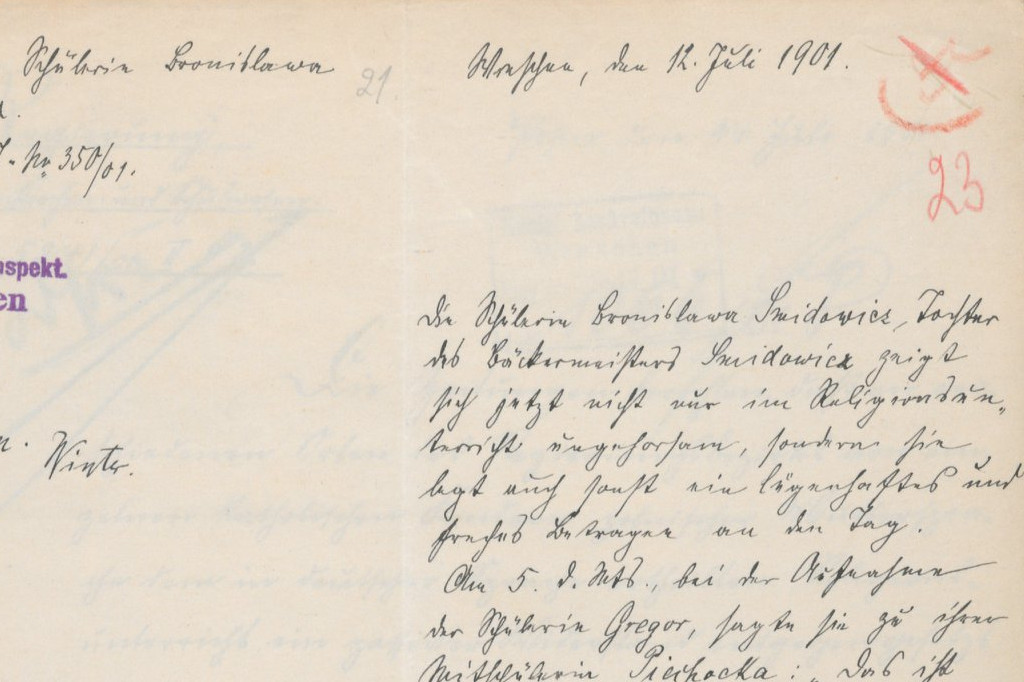 Schülerin Bronislawa
21.
№ 350/01.
nspekt.
en
Winter.
Wreschen, den 12. Juli 1901.
23
Die Schülerin Bronislawa Smidowicz, Tochter
des Bäckermeisters Smidowicz zeigt
sich jetzt nicht nur im Religionsun-
terricht ungehorsam, sondern sie
legt auch sonst ein lügenhaftes und
freches Betragen an den Tag.
Am 5. d. Mts., bei der Aufnahme
der Schülerin Gregor, sagte sie zu ihrer
Mitschülerin Piechocka: „Das ist